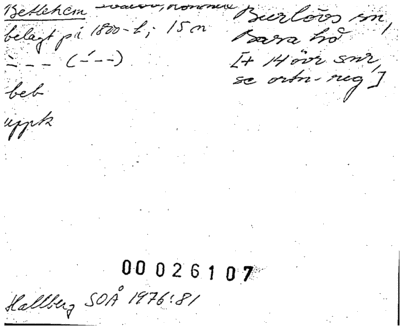 Betlehem
Burlövs sn,
belagt på 1800-t; 15 n
Bara hd
- - - (-́ - -)
[+ 14 övr snr,
se ortn-reg]
beb
uppk
00026107
Hallberg SOÅ 1976:81